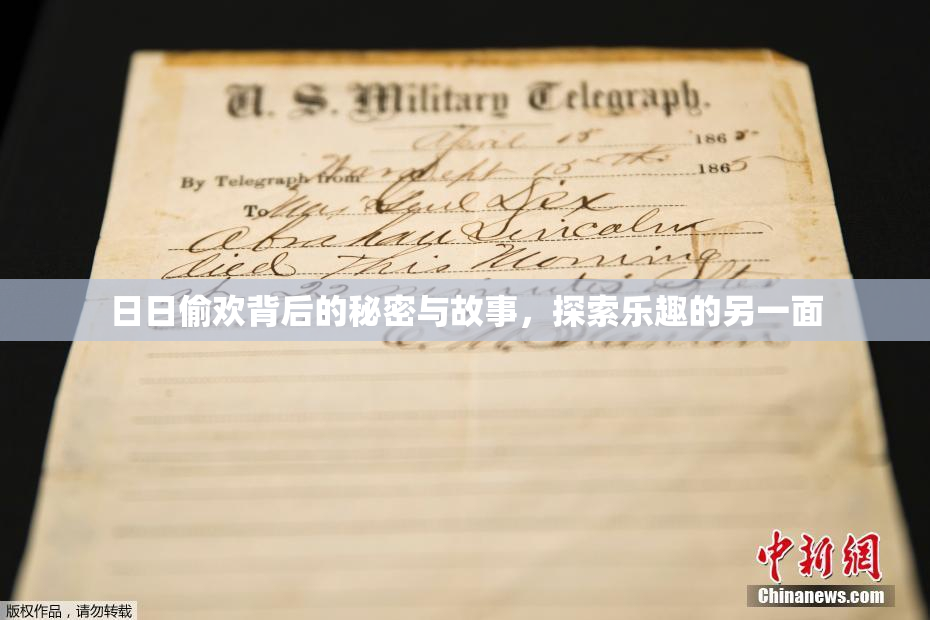 U. S. Military Telegraph.
April 15 1865
By Telegraph from War Dept 15th 1865
To Maj Genl Dix
Abraham Lincoln
died This Morning
at 22 minutes after
日日偷欢背后的秘密与故事，探索乐趣的另一面
中新网
Chinanews.com
版权作品，请勿转载